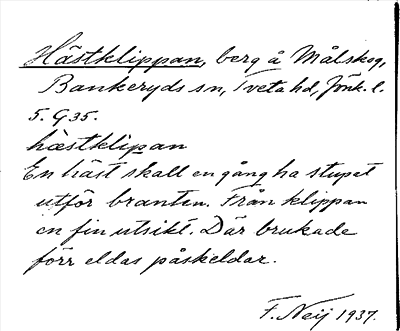 Hästklippan, berg å Målskog,
Bankeryds sn, Tveta hd, Jönk. l.
5. G35.
hæstklipan
En häst skall en gång ha stupat
utför branten. Från klippan
en fin utsikt. Där brukade
förr eldas påskeldar.
F. Neij 1937.